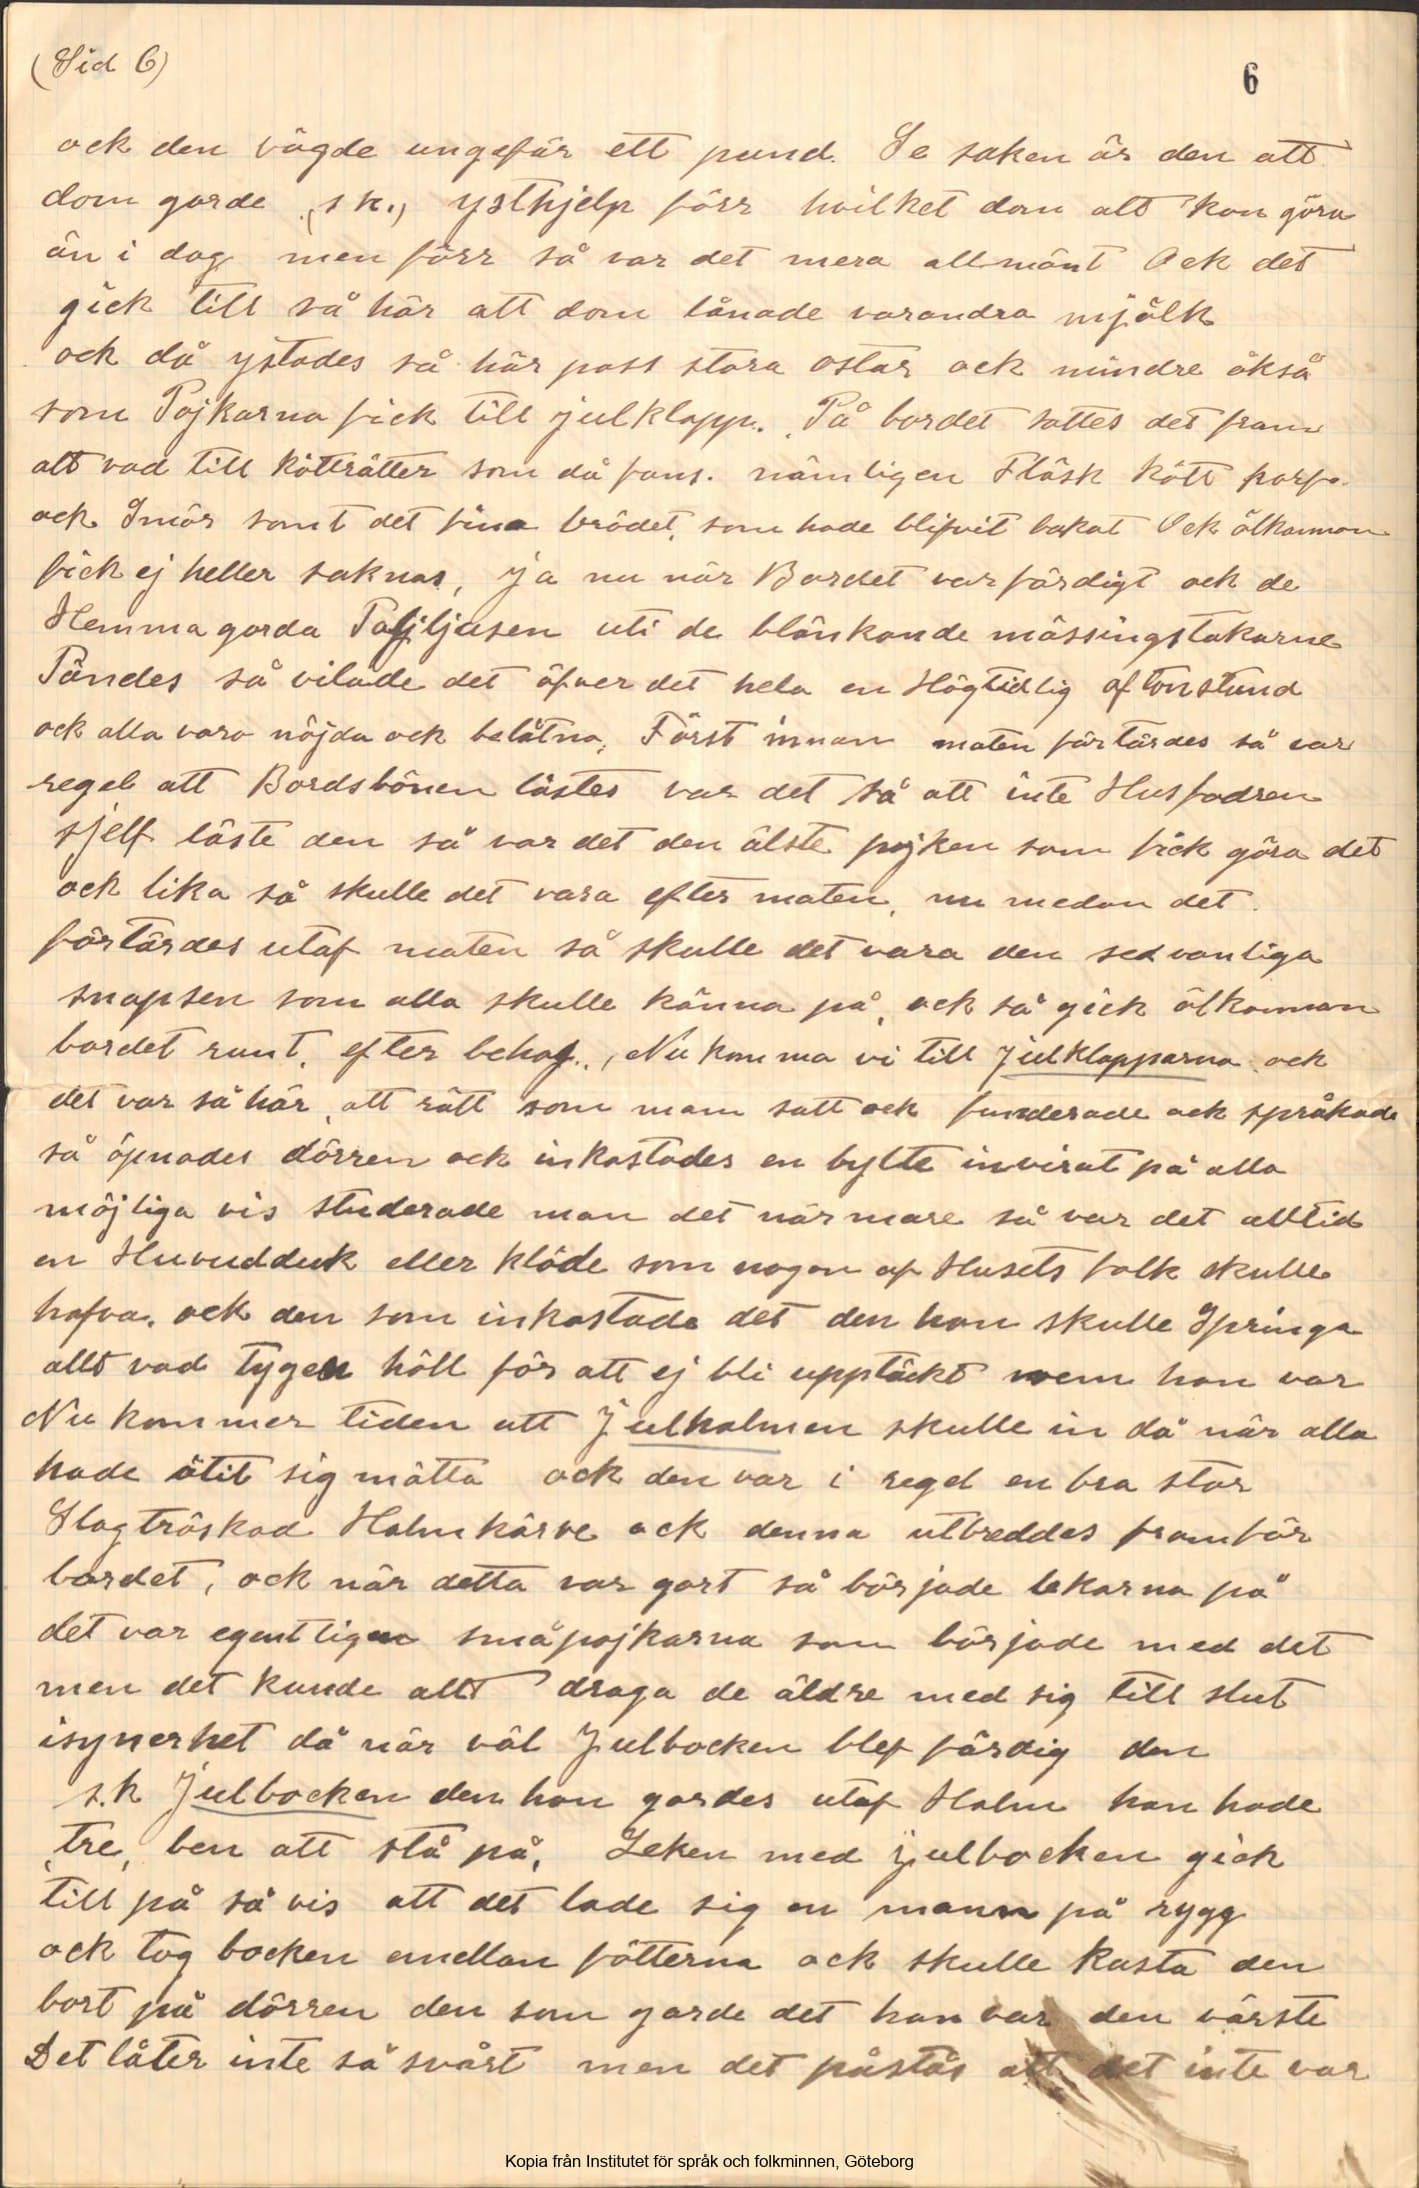 (Sid 6)
6
ock den vägde ungefär ett pund. Se saken är den att
dom gorde (s k.) ysthjelp förr hvilket dom alt kan göra
än i dag men förr så var det mera allmänt Ock det
gick till så här att dom lånade varandra mjölk
ock då ystades så här pass stora ostar ock mindre ökså
som Pojkarna fick till julklapp. På bordet sattes det fram
alt vad till kötträtter som då fans. nämligen Fläsk kött
ock Smör samt det fina brödet, som hade blifvit bakat Ock ölkannan
fick ej heller saknas, ja nu när Bordet var färdigt ock de
Hemmagorda Taljljusen uti de blänkande mässingstakarne
Tändes så vilade det öfver det hela en Högtidlig aftonstund
ock alla varo nöjda ock belåtna, Först innan maten förtärdes så var
regel att Bordsbönen lästes var det så att inte Husfadren
sjelf läste den så var det den älste pojken som fick göra det
ock lika så skulle det vara efter maten, nu medan det
förtärdes utaf maten så skulle det vara den sedvanliga
snapsen som alla skulle känna på, ock så gick ölkannan
bordet runt, efter behag., Nu komma vi till julklapparna ock
det var så här, att rätt som mam satt ock funderade ock språkade
så öpnades dörren ock inkastades en bylte invirat på alla
möjliga vis studerade man det närmare så var det alltid
en Huvudduk eller kläde som nogon af Husets folk skulle
hafva. ock den som inkastade det den han skulle Springa
allt vad tygen höll för att ej bli upptäckt vem han var
Nu kommer tiden att Julhalmen skulle in då när alla
hade ätit sig mätta ock den var i regel en bra stor
Slagtröskad Halmkärve ock denna utbreddes framför
bordet, ock när detta var gort så började lekarna på
det var egentligen småpojkarna som började med det
men det kunde allt draga de äldre med sig till slut
isynerhet då när väl Julbocken blef färdig den
s.k Julbocken den han gordes utaf Halm han hade
tre, ben att stå på, Leken med julbocken gick
till på så vis att det lade sig en mann på rygg
ock tog bocken emellan fötterna ock skulle kasta den
bort på dörren den som gorde det han var den värste
Det låter inte så svårt men det påstås att det inte var
Kopia från Institutet för språk och folkminnen, Göteborg